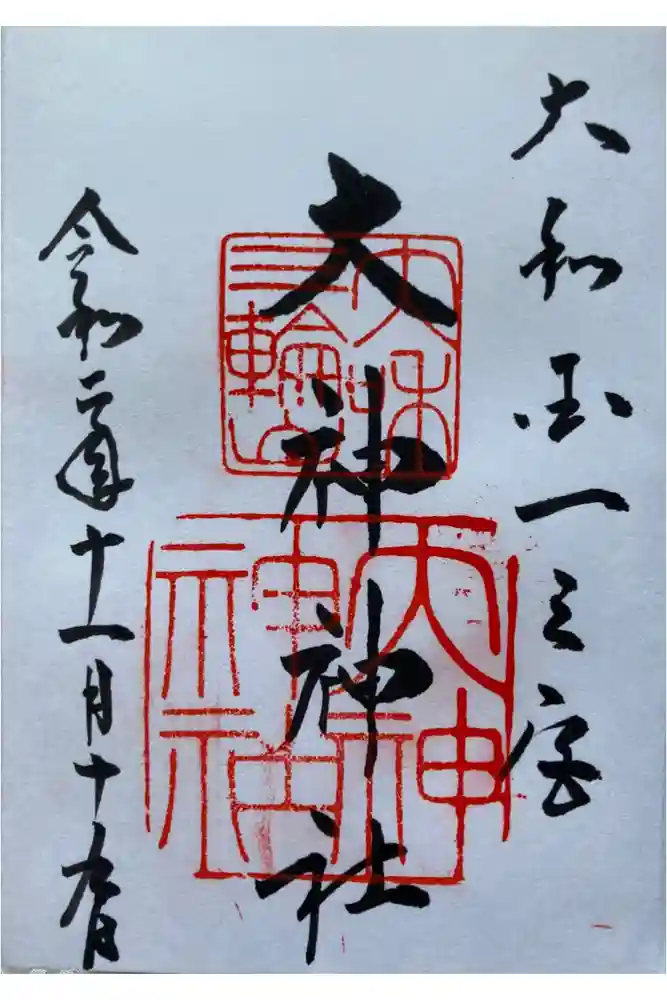 大和国一之宮
大神神社
令和二年十一月十九日
大和
三輪山
大神
神社